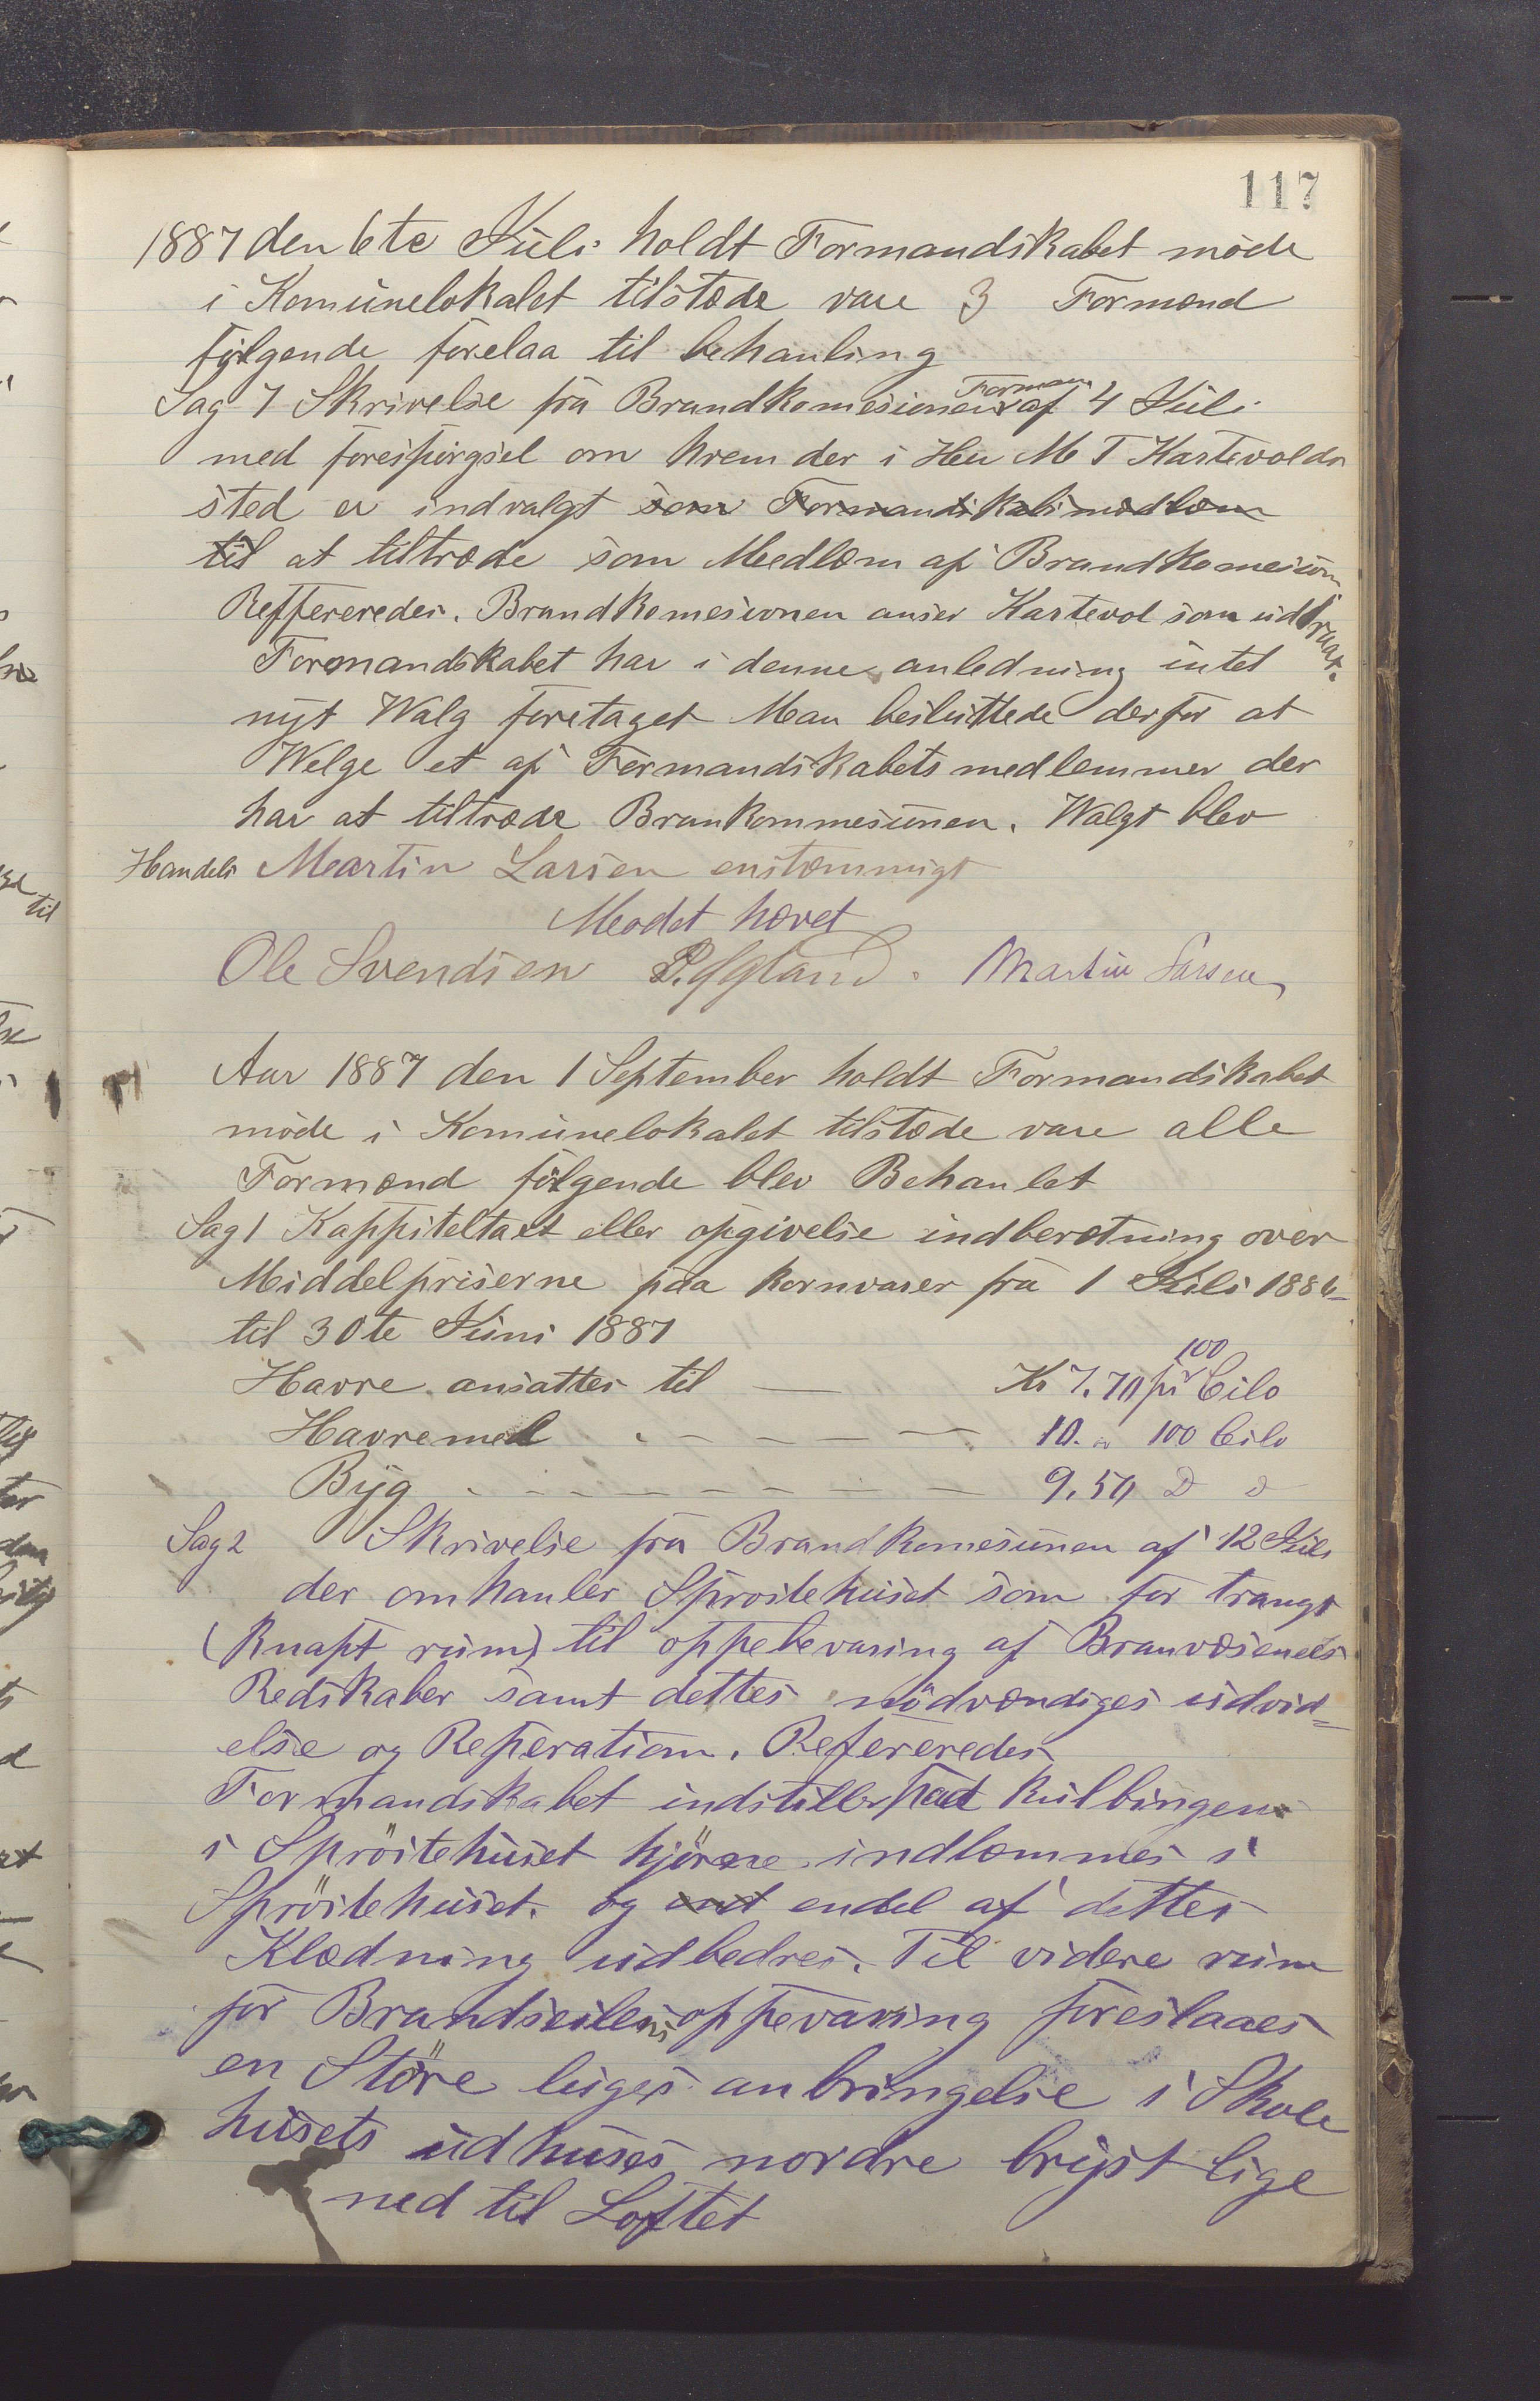 117
1887 den 6te Juli holdt Formandskabet møde
i Komunelokalet tilstæde vare 3 Formænd
følgende forelaa til behanling
Sag 1 Skrivelse fra Brandkomesionens Forman af 4 Juli
med forespørgsel om hvem der i Herr M T Kartevolds
sted er indvalgt som Formandskabsmedlem
til at tiltræde som Medlem af Brandkomesion
Reffereredes. Brandkomesionen anser Kartevol som udtraat.
Formandskabet har i denne anledning intet
nyt Walg foretaget Man besluttede derfor at
Welge et af Formandskabets medlemmer der
har at tiltræde Brankommesionen. Walgt blev
Handels Martin Larsen enstæmmigt
Mødet hævet
Ole Svendsen Martin Larsen
Aar 1887 den 1 September holdt Formandskabet
møde i Komunelokalet tilstæde vare alle
Formænd følgende blev Behanlet
Sag 1 Kappiteltaxt eller opgivelse indberetning over
Middelpriserne paa kornvarer fra 1 Juli 1886
til 30te Juni 1887
Havre ansattes til — Kr 7.70 pr 100 Cilo
Havremel - - - - 10. " 100 Cilo
Byg - - - - - - 9.50 D D
Sag 2 Skrivelse fra Brandkomesionen af 12 Juli
der omhanler Sprøitehuset som for trangt
(Knapt rum) til oppebevaring af Branvæsenets
Redskaber samt dettes nødvendiges udvid=
else og Reperation. Refereredes
Formandskabet indstiller paa at kulbingen
i Sprøitehuset hjørne indlemmes i
Sprøitehuset. og endel af dettes
Klædning udbedres. Til videre rum
for Brandseilenes oppevaring foreslaaes
en Støre luges anbringelse i Skole
husets udhuses nordre bryst lige
ned til Loftet